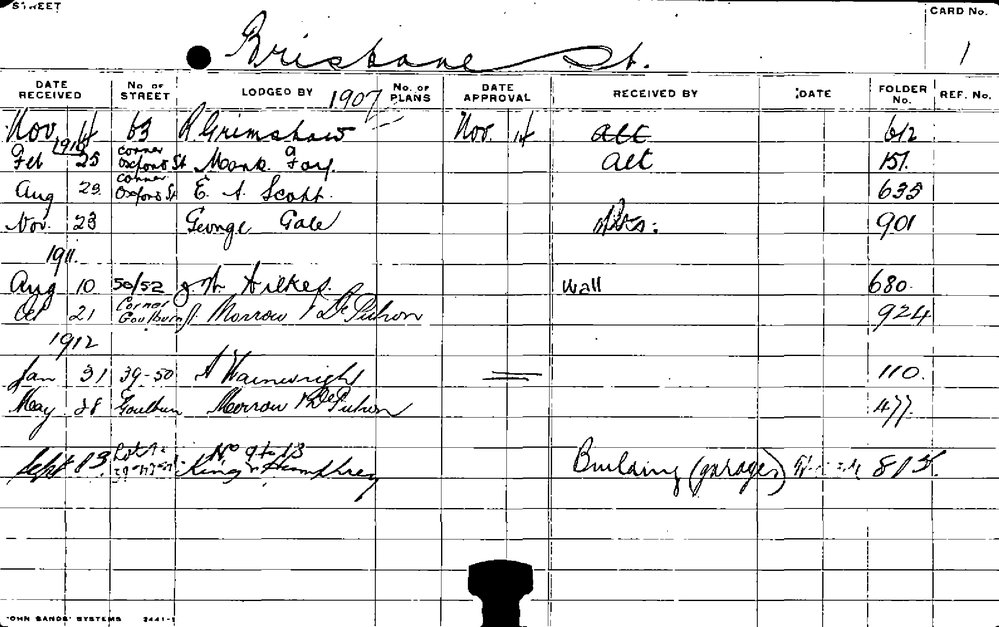 STREET
CARD No.
Brisbane St.
1
DATE RECEIVED No OF STREET LODGED BY 1907 No. OF PLANS DATE APPROVAL RECEIVED BY DATE FOLDER No. REF. No.
Nov 14 63 R Grimshaw Nov. 14 alt 612
1910
Feb 25 corner Oxford St Mark Foy. alt 151.
Aug 29 corner Oxford St E. A. Scott. 635
Nov. 23 George Gale 901
1911.
Aug 10 50/52 Hilkes. Wall 680.
Oct 21 Corner Goulburn J. Morrow & De Putron 924
1912
Jan 31 39-50 A Wainwright 110.
May 28 Goulburn Morrow & De Putron 477.
No 9 to 13
Sept 13 King & Humphrey Building (garages)
'OHN SANDS' SYSTEMS 3441-1